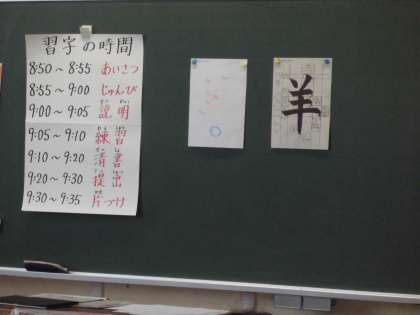 習字の時間
8:50～8:55 あいさつ
8:55～9:00 じゅんび
9:00～9:05 説明
9:05～9:10 練習
9:10～9:20 清書
9:20～9:30 提出
9:30～9:35 片づけ
羊